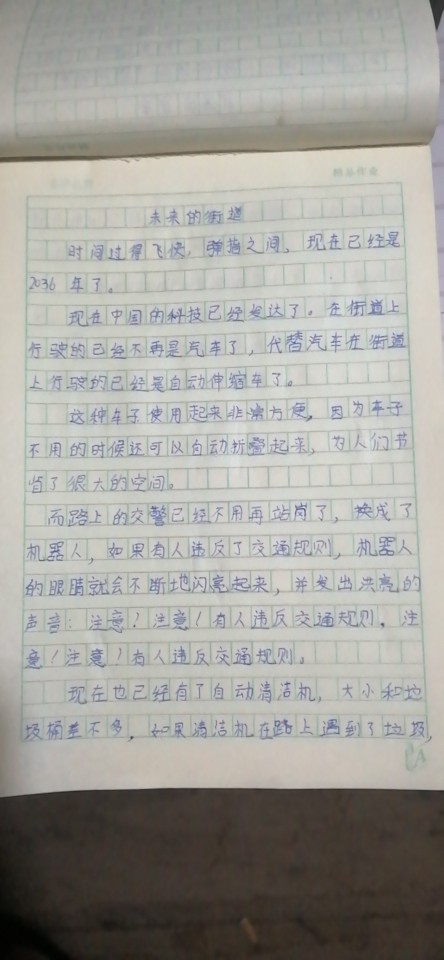 未来的街道
时间过得飞快，弹指之间，现在已经是
2036年了。
现在中国的科技已经发达了。在街道上
行驶的已经不再是汽车了，代替汽车在街道
上行驶的已经是自动伸缩车了。
这种车子使用起来非常方便，因为车子
不用的时候还可以自动折叠起来，为人们节
省了很大的空间。
而路上的交警已经不用再站岗了，换成了
机器人，如果有人违反了交通规则，机器人
的眼睛就会不断地闪亮起来，并发出洪亮的
声音：注意！注意！有人违反交通规则，注
意！注意！有人违反交通规则。
现在也已经有了自动清洁机，大小和垃
圾桶差不多，如果清洁机在路上遇到了垃圾，